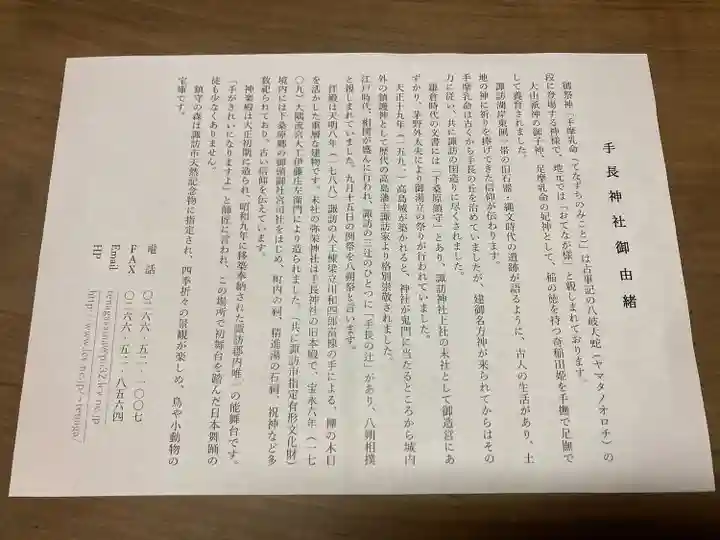 手長神社御由緒
御祭神「手摩乳命(てなずちのみこと)」は古事記の八岐大蛇(ヤマタノオロチ)の
段に登場する神様で、地元では「おてなが様」と親しまれております。
大山祇神の御子神、足摩乳命の妃神として、稲の徳を持つ奇稲田姫を手撫で足撫で
して養育されました。
諏訪湖岸東側一帯の旧石器・縄文時代の遺跡が語るように、古人の生活があり、土
地の神に祈りを捧げてきた信仰が伝わります。
手摩乳命は古くから手長の丘を治めていましたが、建御名方神が来られてからはその
力に従い、共に諏訪の国造りに尽くされました。
鎌倉時代の文書には「下桑原鎮守」とあり、諏訪神社上社の末社として御造営にあ
ずかり、茅野外太夫により御湯立の祭りが行われていました。
天正十九年(一五九一)高島城が築かれると、神社が鬼門に当たるところから城内
外の鎮護神として歴代の高島藩主諏訪家より格別崇敬されました。
江戸時代、相撲が盛んに行われ、諏訪の三辻のひとつに「手長の辻」があり、八朔相撲
と親しまれていました。九月十五日の例祭を八朔祭と言います。
拝殿は天明八年(一七八八)諏訪の大工棟梁立川和四郎富棟の手による、欅の木目
を活かした重厚な建物です。末社の弥栄神社は手長神社の旧本殿で、宝永六年(一七
〇九)大隅流宮大工伊藤庄左衛門により造られました。(共に諏訪市指定有形文化財)
境内には下桑原郷の御頭御社宮司社をはじめ、町内の祠、精進湯の石祠、祝神など多
数祀られており、古い信仰を伝えています。
神楽殿は大正初期に造られ、昭和九年に移築奉納された諏訪郡内唯一の能舞台です。
「手がきれいになりますよ」と師匠に言われ、この場所で初舞台を踏んだ日本舞踊の
徒も少なくありません。
鎮守の森は諏訪市天然記念物に指定され、四季折々の景観が楽しめ、鳥や小動物の
宝庫です。
電話 〇二六六・五二・一〇〇七
FAX 〇二六六・五二・八五六四
Email
HP